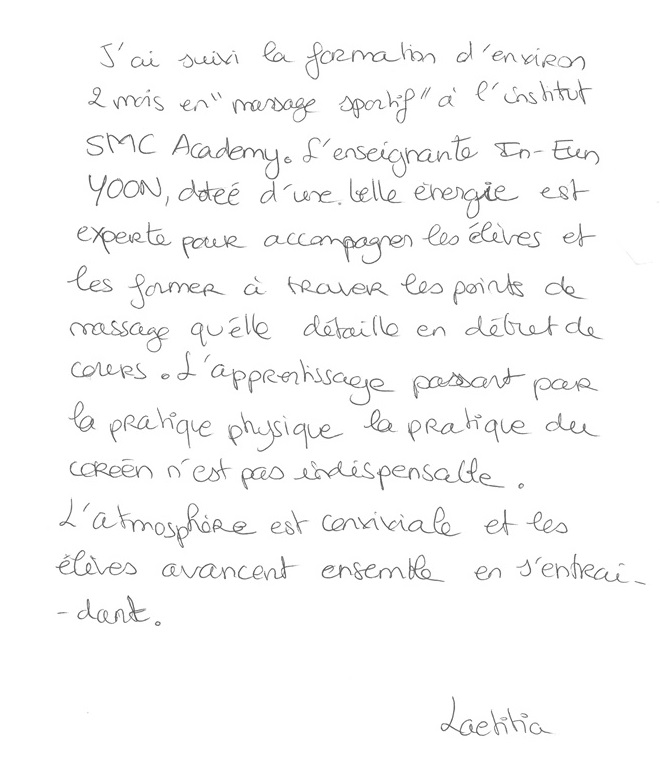 J'ai suivi la formation d'environ
2 mois en "massage sportif" à l'institut
SMC Academy. L'enseignante In-Eun
YOON, dotéé d'une belle énergie est
experte pour accompagner les élèves et
les former à traver les points de
massage qu'elle détaille en début de
cours. L'apprentissage passant par
la pratique physique la pratique du
coréen n'est pas indispensable.
L'atmosphère est conviviale et les
élèves avancent ensemble en s'entrai-
-dant.
Laetitia